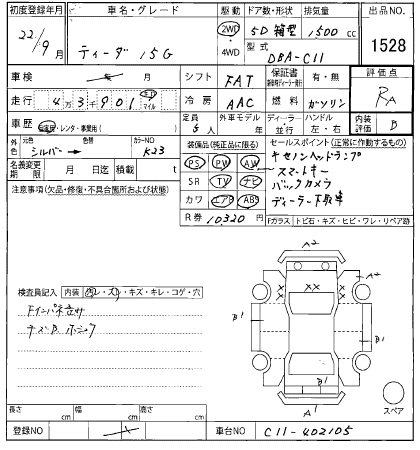 初度登録年月 車名・グレード 駆動 ドア数・形状 排気量 出品NO.
22/9月 ティーダ 15G 2WD 4WD 5D 箱型 1500cc 1528
型式 DBA-C11
車検 年 月 シフト FAT 保証書 有・無 評価点
走行 4万3千901 キロ マイル 冷房 AAC 燃料 ガソリン RA
車歴 自家用・レンタ・事業用( ) 定員 5人 外車モデル 年 ディーラー 並行 ハンドル 左・右 内装評価 B
外色 元色 シルバー 色替 カラーNO K23
装備品(純正品に限る) セールスポイント(正常に作動するもの)
名義変更期限 月 日迄 積載 t
PS PW AW キセノンヘッドランプ
SR TV ナビ スマートキー
カワ エアB ABS バックカメラ
ディーラー下取車
注意事項(欠品・修復・不具合箇所および状態)
R券 10320円 Fガラス トビ石・キズ・ヒビ・ワレ・リペア跡
A2
A2
XX XX
B1 B1
B1
A1
スペア
検査員記入 内装 汚レ・スレ・キズ・キレ・コゲ・穴
長さ cm 幅 cm 高さ cm
登録NO 車台NO C11-402105